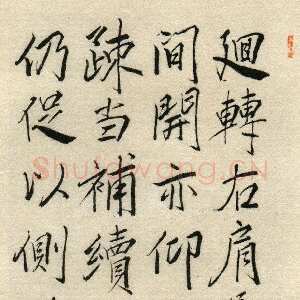 迴轉右肩
間開亦仰
疎当補續
仍促以側
Shufawang.CN